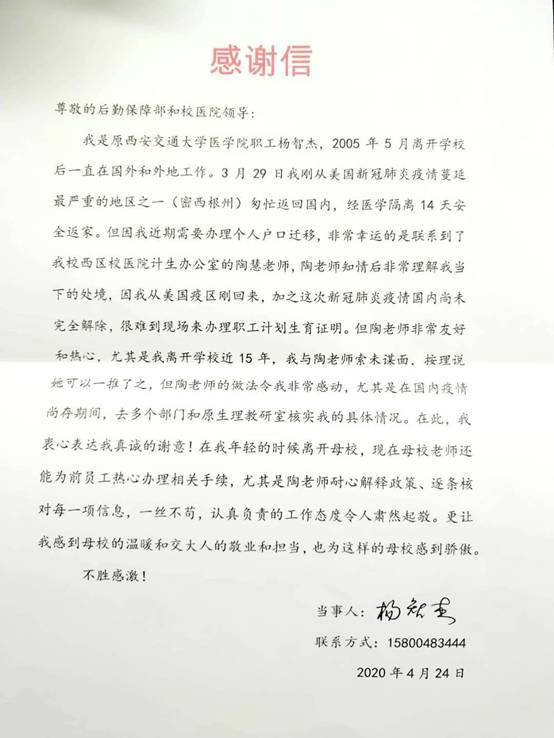 感谢信
尊敬的后勤保障部和校医院领导：
我是原西安交通大学医学院职工杨智杰，2005 年 5 月离开学校
后一直在国外和外地工作。3 月 29 日我刚从美国新冠肺炎疫情蔓延
最严重的地区之一（密西根州）匆忙返回国内，经医学隔离 14 天安
全返家。但因我近期需要办理个人户口迁移，非常幸运的是联系到了
我校西区校医院计生办公室的陶慧老师，陶老师知情后非常理解我当
下的处境，因我从美国疫区刚回来，加之这次新冠肺炎疫情国内尚未
完全解除，很难到现场来办理职工计划生育证明。但陶老师非常友好
和热心，尤其是我离开学校近 15 年，我与陶老师索未谋面，按理说
她可以一推了之，但陶老师的做法令我非常感动，尤其是在国内疫情
尚存期间，去多个部门和原生理教研室核实我的具体情况。在此，我
衷心表达我真诚的谢意！在我年轻的时候离开母校，现在母校老师还
能为前员工热心办理相关手续，尤其是陶老师耐心解释政策、逐条核
对每一项信息，一丝不苟，认真负责的工作态度令人肃然起敬。更让
我感到母校的温暖和交大人的敬业和担当，也为这样的母校感到骄傲。
不胜感激！
当事人：杨智杰
联系方式：15800483444
2020 年 4 月 24 日